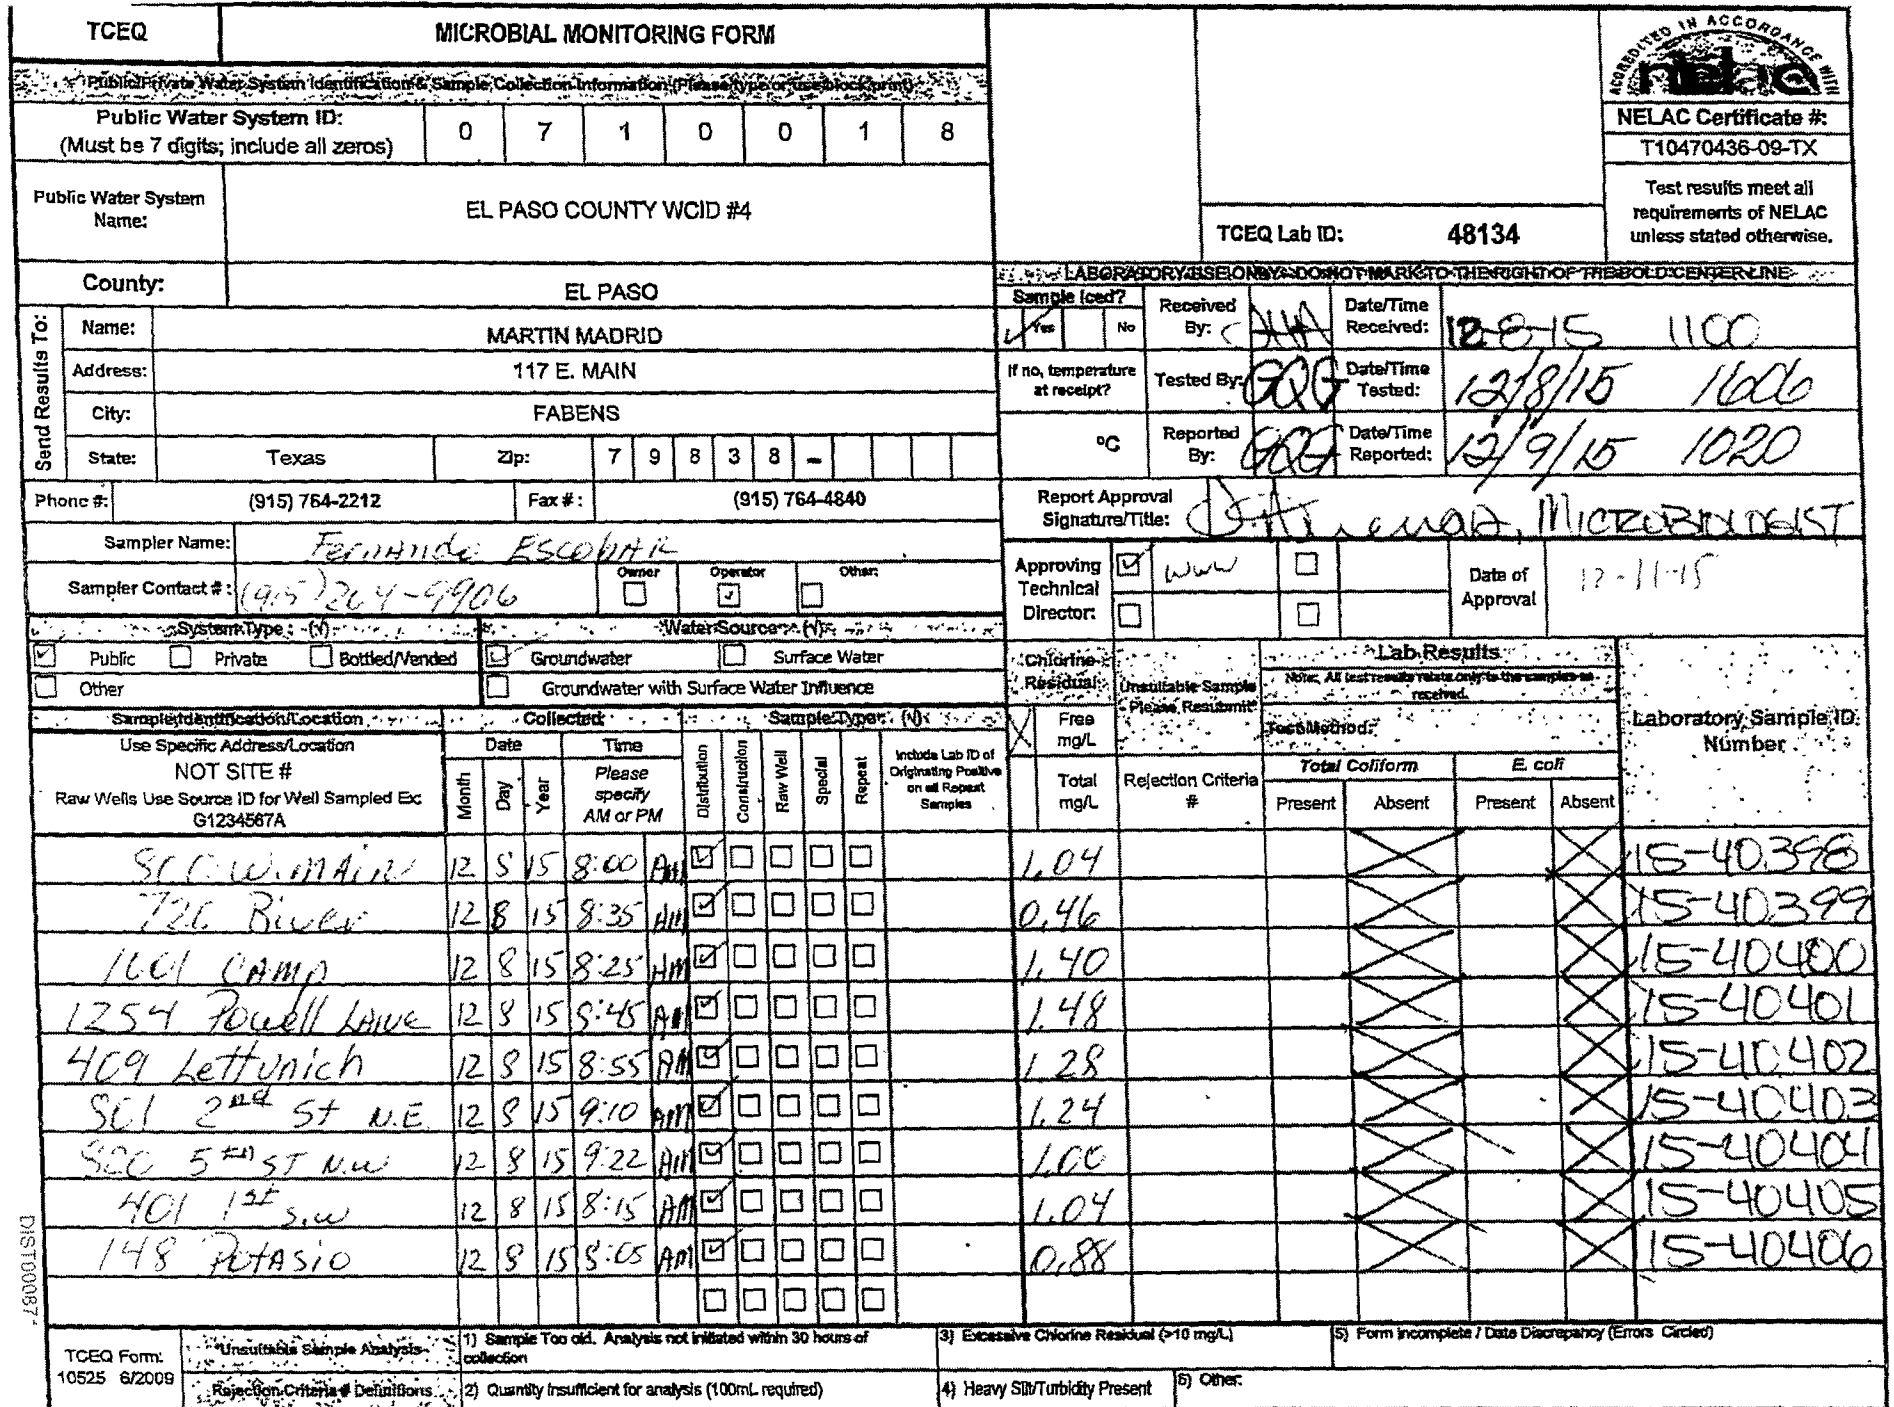 TCEQ
MICROBIAL MONITORING FORM
Public/Private Water System Identification & Sample Collection Information (Please type or use block print)
Public Water System ID:
(Must be 7 digits; include all zeros)
0 7 1 0 0 1 8
Public Water System Name:
EL PASO COUNTY WCID #4
County:
EL PASO
Send Results To:
Name: MARTIN MADRID
Address: 117 E. MAIN
City: FABENS
State: Texas Zip: 7 9 8 3 8 -
Phone #: (915) 764-2212 Fax #: (915) 764-4840
Sampler Name: Fernando Escobar
Sampler Contact #: (915) 264-9906 Owner Operator Other:
System Type: (√) Water Source: (√)
Public Private Bottled/Vended Groundwater Surface Water
Other Groundwater with Surface Water Influence
ACCREDITED IN ACCORDANCE WITH
nelac
NELAC Certificate #:
T10470436-09-TX
Test results meet all
requirements of NELAC
unless stated otherwise.
TCEQ Lab ID: 48134
LABORATORY USE ONLY - DO NOT MARK TO THE RIGHT OF THE BOLD CENTER LINE
Sample Iced? Yes No
Received By: Date/Time Received: 12-8-15 1100
If no, temperature at receipt? °C
Tested By: GQG Date/Time Tested: 12/8/15 1606
Reported By: GQG Date/Time Reported: 12/9/15 1020
Report Approval Signature/Title: , MICROBIOLOGIST
Approving Technical Director: WWW Date of Approval 12-11-15
Sample Identification/Location Collected Sample Type: (√)
Use Specific Address/Location
NOT SITE #
Raw Wells Use Source ID for Well Sampled Ex:
G1234567A
Date Time
Month Day Year Please specify AM or PM
Distribution Construction Raw Well Special Repeat
Include Lab ID of Originating Positive on all Repeat Samples
Chlorine Residual: Free mg/L Total mg/L
Unsuitable Sample Please Resubmit
Rejection Criteria #
Lab Results
Note: All test results relate only to the samples as received.
Test Method:
Total Coliform E. coli
Present Absent Present Absent
Laboratory Sample ID Number
W. MAIN 12 15 8:00 AM 1.04 15-40398
726 River 12 8 15 8:35 AM 0.46 15-40399
1601 CAMP 12 8 15 8:25 AM 1.40 15-40400
1254 Powell LANE 12 8 15 8:45 AM 1.48 15-40401
409 Lettunich 12 8 15 8:55 AM 1.28 15-40402
801 2nd St N.E. 12 8 15 9:10 AM 1.24 15-40403
820 5th ST N.W 12 8 15 9:22 AM 1.00 15-40404
401 1st S.W 12 8 15 8:15 AM 1.04 15-40405
148 Potasio 12 8 15 8:05 AM 0.88 15-40406
DIST00087
TCEQ Form: 10525 6/2009
*Unsuitable Sample Analysis
Rejection Criteria # Definitions
1) Sample Too old. Analysis not initiated within 30 hours of collection
2) Quantity insufficient for analysis (100mL required)
3) Excessive Chlorine Residual (>10 mg/L)
4) Heavy Silt/Turbidity Present
5) Form incomplete / Date Discrepancy (Errors Circled)
6) Other: